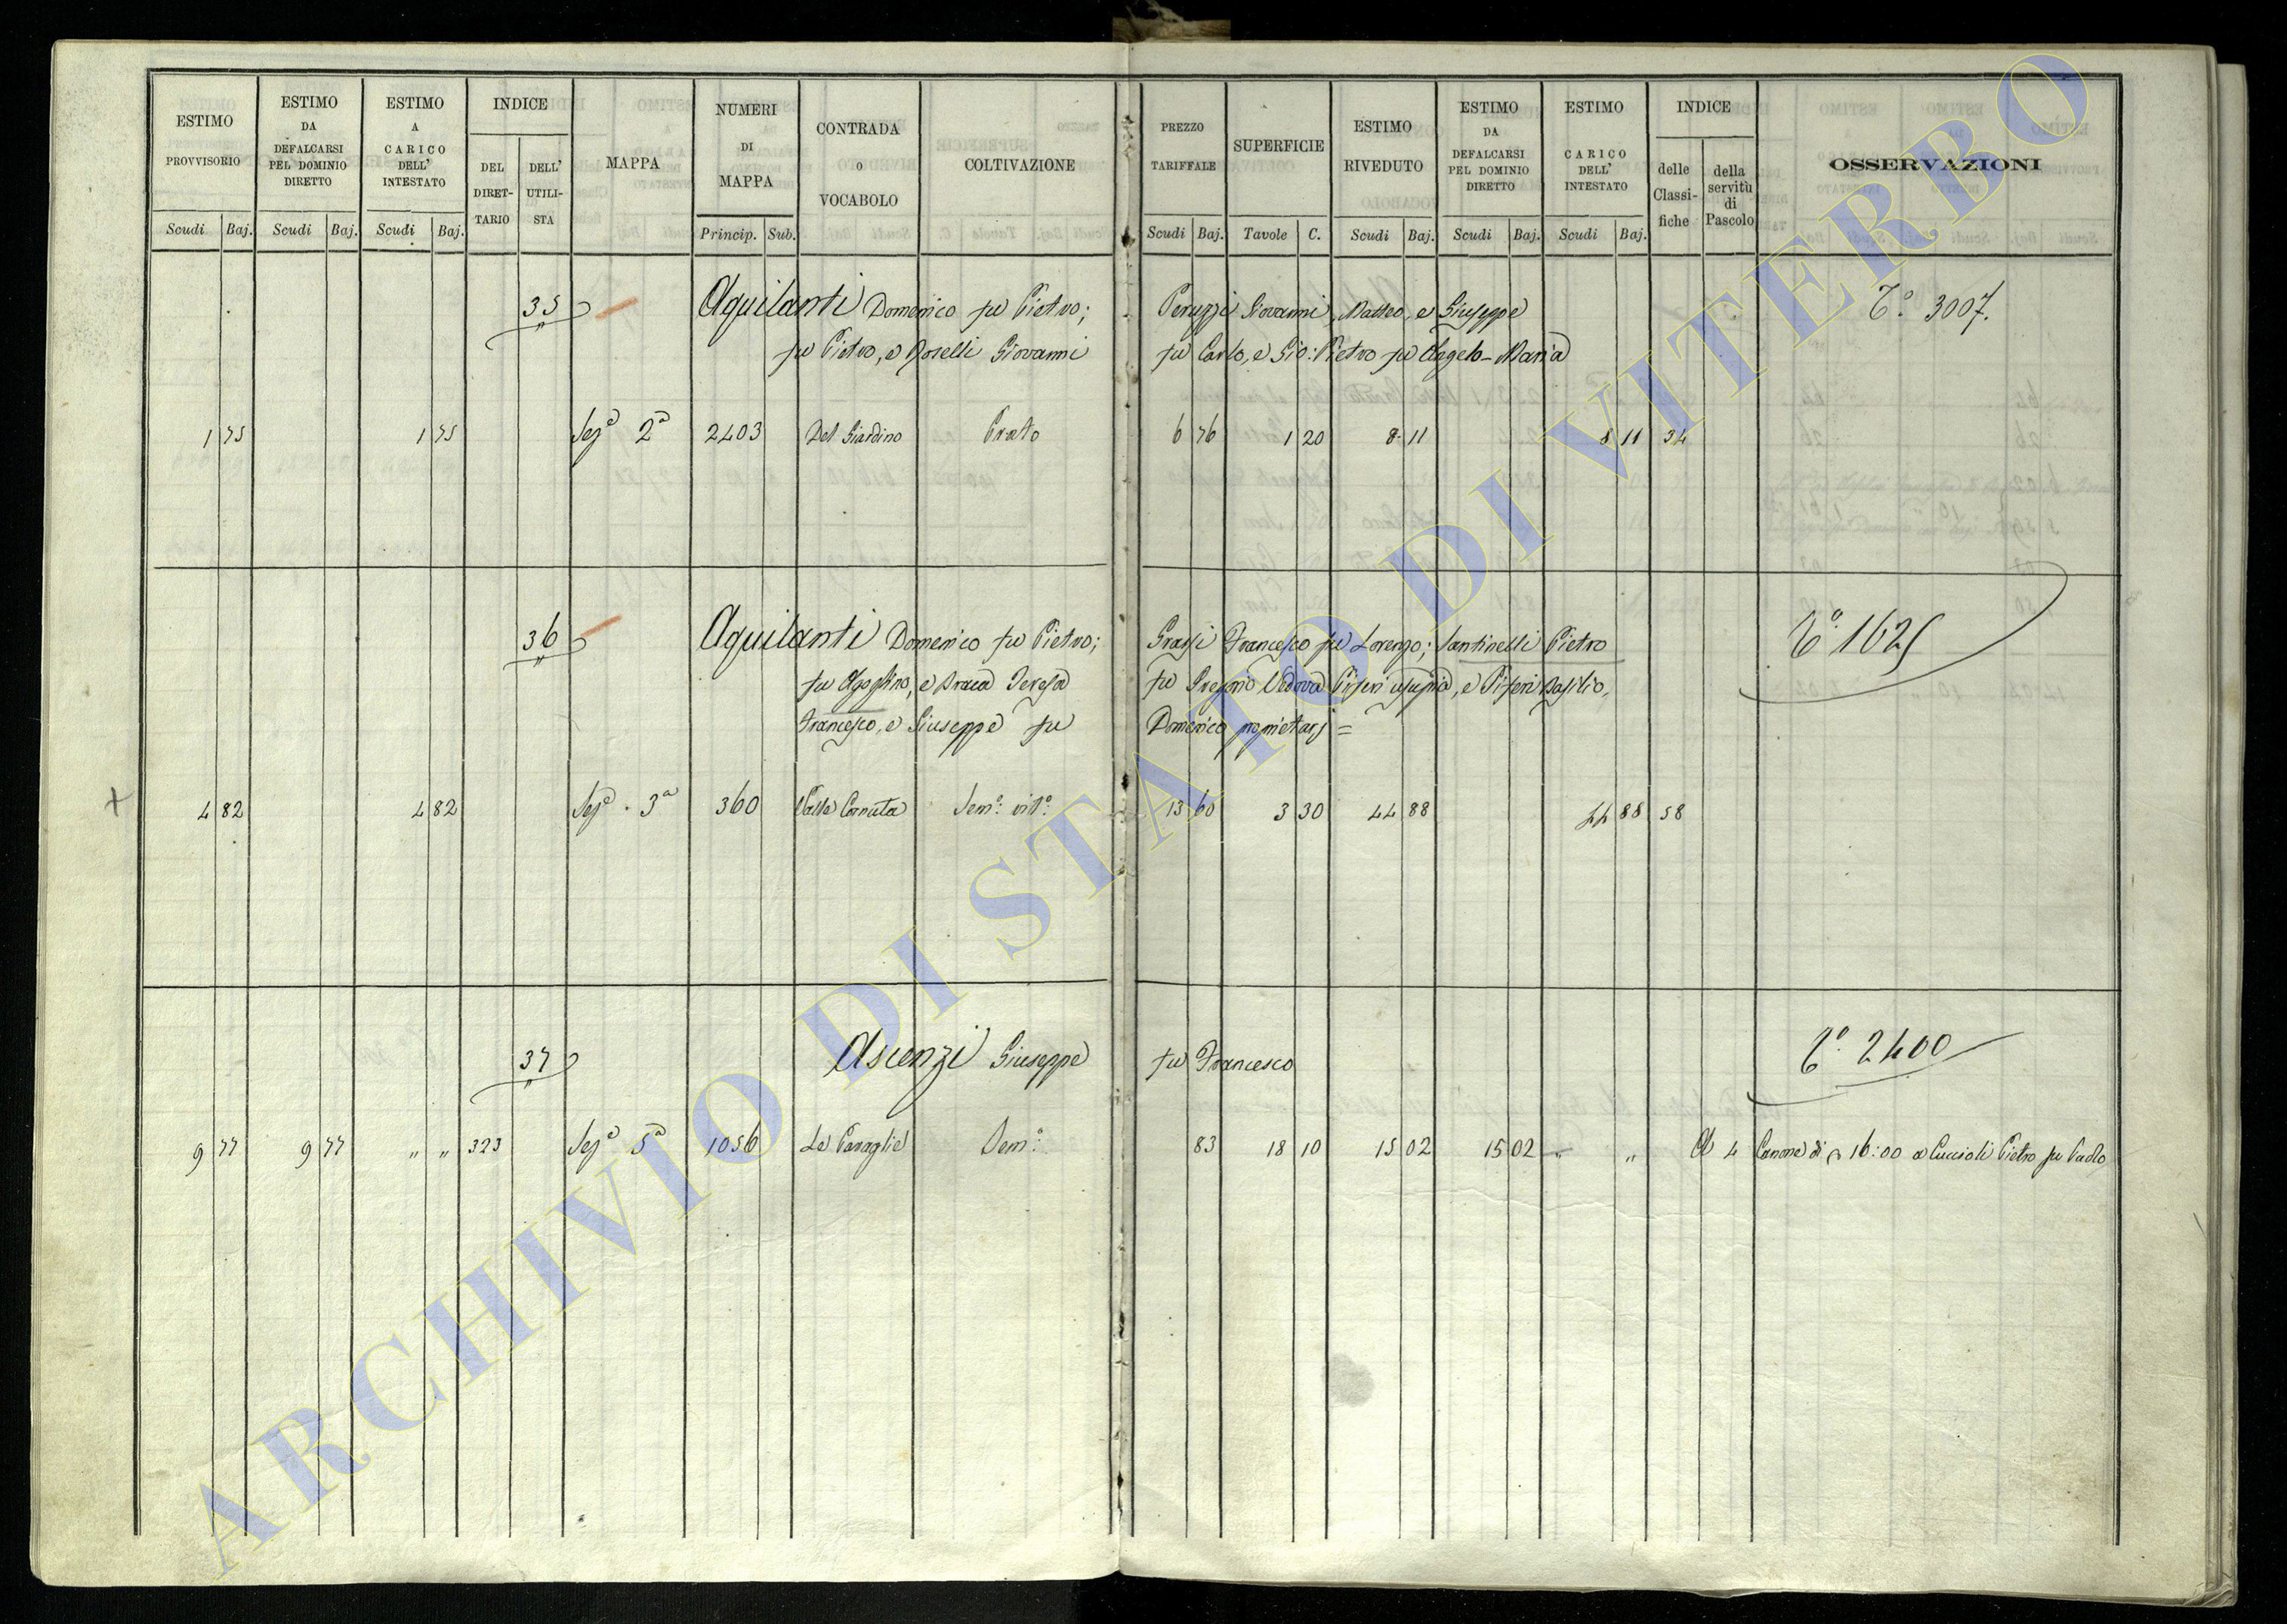 ESTIMO PROVVISORIO Scudi Baj.
ESTIMO DA DEFALCARSI PEL DOMINIO DIRETTO Scudi Baj.
ESTIMO A CARICO DELL' INTESTATO Scudi Baj.
INDICE DEL DIRET- TARIO DELL' UTILI- STA
MAPPA
NUMERI DI MAPPA Princip. Sub.
CONTRADA o VOCABOLO
COLTIVAZIONE
PREZZO TARIFFALE Scudi Baj.
SUPERFICIE Tavole C.
ESTIMO RIVEDUTO Scudi Baj.
ESTIMO DA DEFALCARSI PEL DOMINIO DIRETTO Scudi Baj.
ESTIMO CARICO DELL' INTESTATO Scudi Baj.
INDICE delle Classi- fiche della servitù di Pascolo
OSSERVAZIONI
35 Aquilanti Domenico fu Pietro; Peruzzi Giovanni, Matteo, e Giuseppe Tº 3007.
fu Pietro, e Roselli Giovanni fu Carlo, e Gio: Pietro fu Angelo-Maria
1 75 1 75 Sezª 2ª 2403 Del Giardino Prato 6 76 1 20 8 11 8 11 34
36 Aquilanti Domenico fu Pietro; Grassi Francesco fu Lorenzo; Santinelli Pietro Tº 1625
fu Agostino, e Teresa fu Gregorio Vedova Piferi usufria, e Piferi Basilio,
Francesco, e Giuseppe fu Domenico proprietarj =
4 82 4 82 Sezª 3ª 360 Valle Cornuta Semº vitº 13 60 3 30 44 88 44 88 58
37 Ascenzi Giuseppe fu Francesco Tº 2400
9 77 9 77 " " 323 Sezª 5ª 1056 Le Paraglie Semº 83 18 10 15 02 15 02 " " A 4 Canone di 16:00 a Cuccioli Pietro fu Paolo
ARCHIVIO DI STATO DI VITERBO